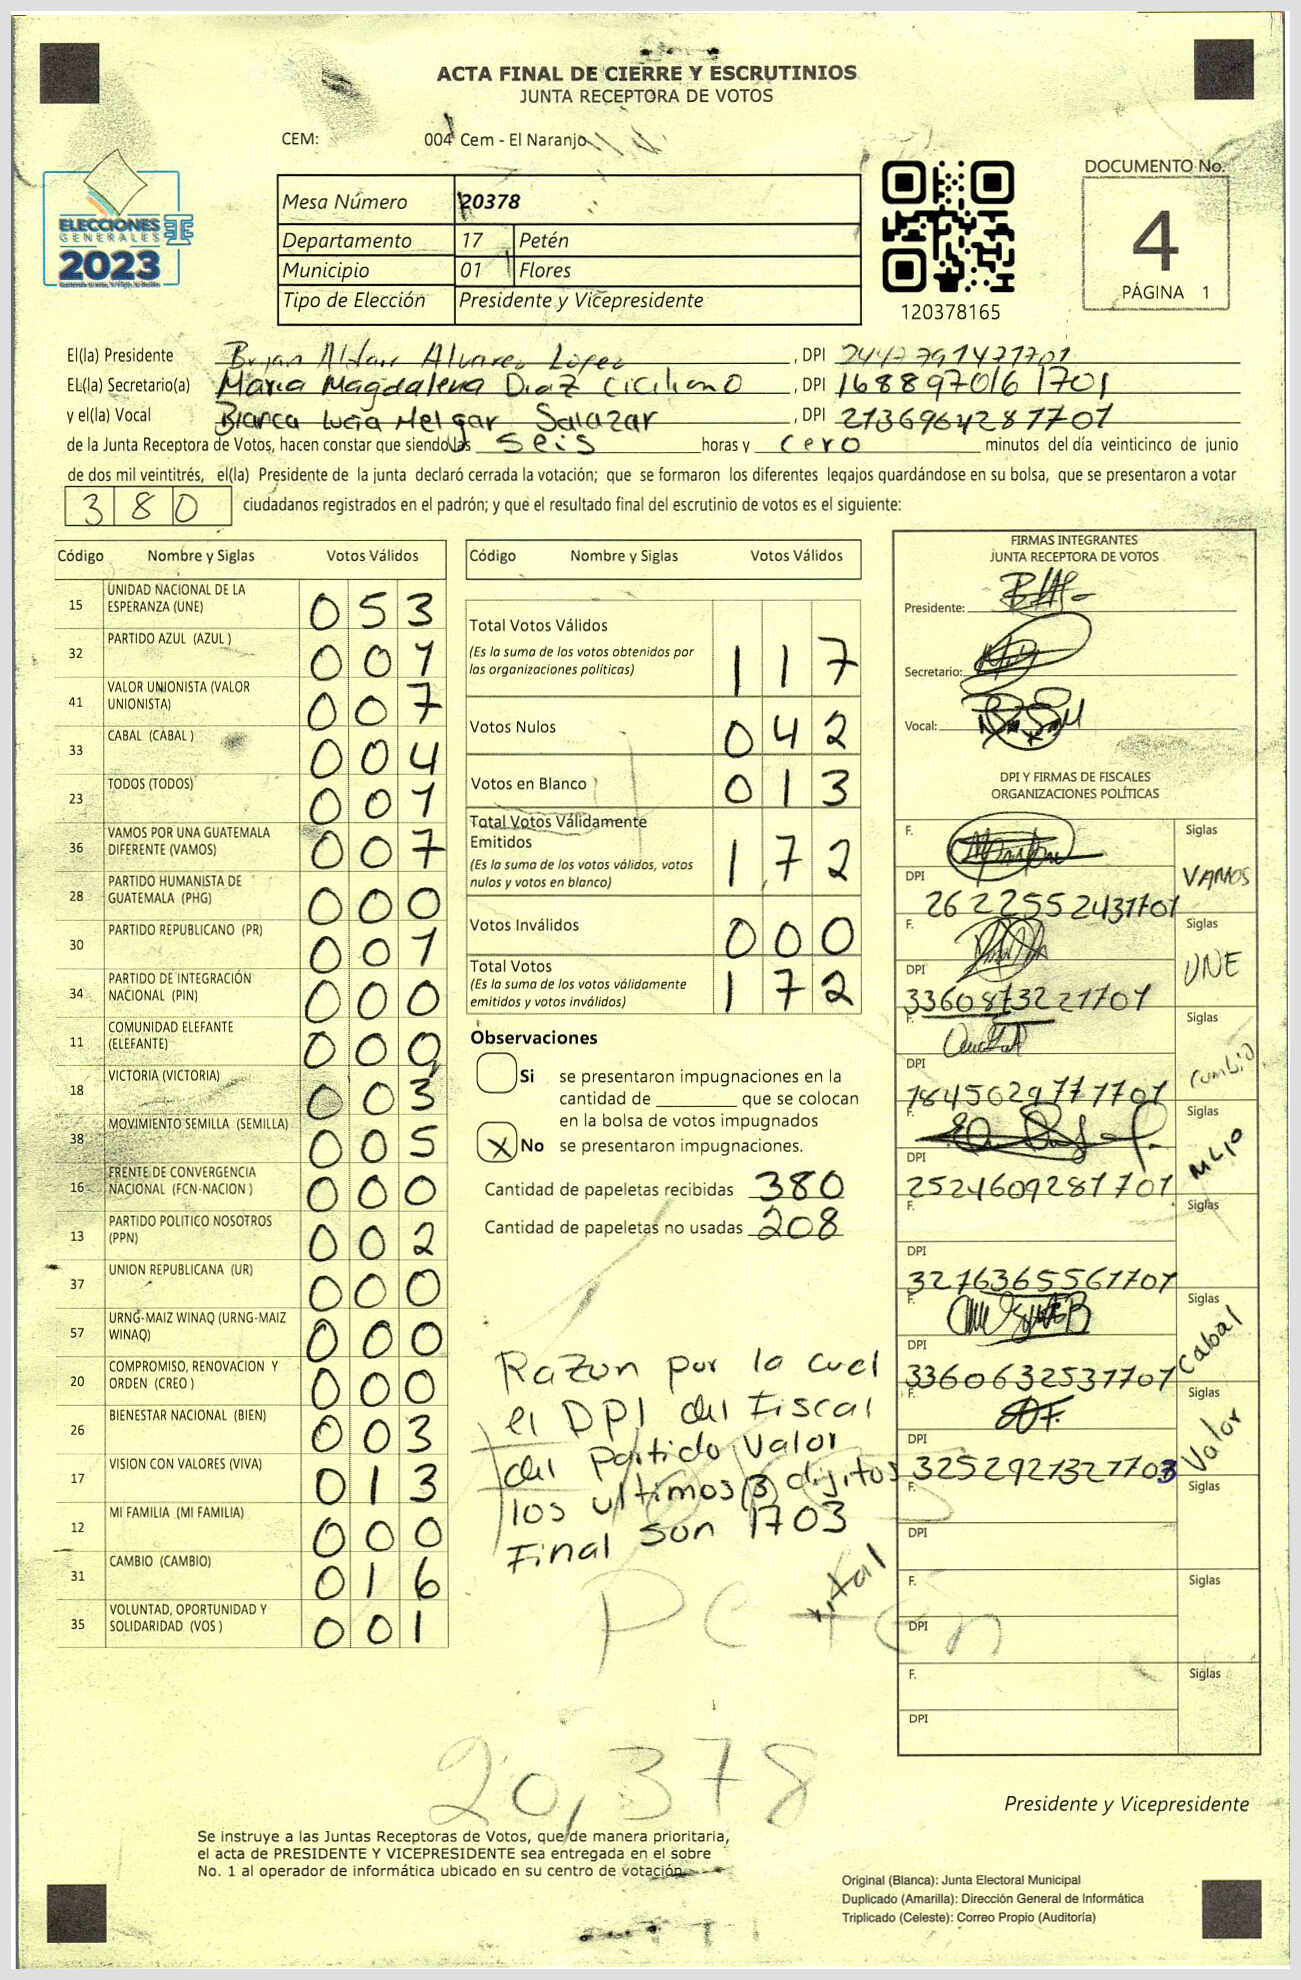 ACTA FINAL DE CIERRE Y ESCRUTINIOS
JUNTA RECEPTORA DE VOTOS
CEM: 004 Cem - El Naranjo
ELECCIONES
GENERALES
2023
Mesa Número 20378
Departamento 17 Petén
Municipio 01 Flores
Tipo de Elección Presidente y Vicepresidente
120378165
DOCUMENTO No.
4
PÁGINA 1
El(la) Presidente Bryan Aldair Alvarez Lopez, DPI 2447791471701
EL(la) Secretario(a) Maria Magdalena Diaz Ciciliano, DPI 168897016 1701
y el(la) Vocal Blanca Lucia Melgar Salazar, DPI 2136964281701
de la Junta Receptora de Votos, hacen constar que siendo las seis horas y cero minutos del día veinticinco de junio
de dos mil veintitrés, el(la) Presidente de la junta declaró cerrada la votación; que se formaron los diferentes legajos quardándose en su bolsa, que se presentaron a votar
380 ciudadanos registrados en el padrón; y que el resultado final del escrutinio de votos es el siguiente:
Código Nombre y Siglas Votos Válidos
15 UNIDAD NACIONAL DE LA ESPERANZA (UNE) 053
32 PARTIDO AZUL (AZUL ) 001
41 VALOR UNIONISTA (VALOR UNIONISTA) 007
33 CABAL (CABAL ) 004
23 TODOS (TODOS) 001
36 VAMOS POR UNA GUATEMALA DIFERENTE (VAMOS) 007
28 PARTIDO HUMANISTA DE GUATEMALA (PHG) 000
30 PARTIDO REPUBLICANO (PR) 001
34 PARTIDO DE INTEGRACIÓN NACIONAL (PIN) 000
11 COMUNIDAD ELEFANTE (ELEFANTE) 000
18 VICTORIA (VICTORIA) 003
38 MOVIMIENTO SEMILLA (SEMILLA) 005
16 FRENTE DE CONVERGENCIA NACIONAL (FCN-NACION ) 000
13 PARTIDO POLITICO NOSOTROS (PPN) 002
37 UNION REPUBLICANA (UR) 000
57 URNG-MAIZ WINAQ (URNG-MAIZ WINAQ) 000
20 COMPROMISO, RENOVACION Y ORDEN (CREO ) 000
26 BIENESTAR NACIONAL (BIEN) 003
17 VISION CON VALORES (VIVA) 013
12 MI FAMILIA (MI FAMILIA) 000
31 CAMBIO (CAMBIO) 016
35 VOLUNTAD, OPORTUNIDAD Y SOLIDARIDAD (VOS ) 001
Código Nombre y Siglas Votos Válidos
Total Votos Válidos 117
(Es la suma de los votos obtenidos por
las organizaciones políticas)
Votos Nulos 042
Votos en Blanco 013
Total Votos Válidamente
Emitidos 172
(Es la suma de los votos válidos, votos
nulos y votos en blanco)
Votos Inválidos 000
Total Votos 172
(Es la suma de los votos válidamente
emitidos y votos inválidos)
Observaciones
Si se presentaron impugnaciones en la
cantidad de ________ que se colocan
en la bolsa de votos impugnados
X No se presentaron impugnaciones.
Cantidad de papeletas recibidas 380
Cantidad de papeletas no usadas 208
Razon por la cual
el DPI del Fiscal
del Partido Valor
los ultimos (3) digitos
Final son 1703
Peten
20,378
FIRMAS INTEGRANTES
JUNTA RECEPTORA DE VOTOS
Presidente:
Secretario:
Vocal:
DPI Y FIRMAS DE FISCALES
ORGANIZACIONES POLÍTICAS
F. Siglas VAMOS
DPI 2622552431701
F. Siglas UNE
DPI 3360873221701
F. Siglas Cambio
DPI 1845029771701
F. Siglas MLP
DPI 2524609281701
F. Siglas
DPI 3276365561701
F. Siglas Cabal
DPI 3360632531701
F. Siglas Valor
DPI 3252921321703
F. Siglas
DPI
F. Siglas
DPI
F. Siglas
DPI
Presidente y Vicepresidente
Se instruye a las Juntas Receptoras de Votos, que de manera prioritaria,
el acta de PRESIDENTE Y VICEPRESIDENTE sea entregada en el sobre
No. 1 al operador de informática ubicado en su centro de votación.
Original (Blanca): Junta Electoral Municipal
Duplicado (Amarilla): Dirección General de Informática
Triplicado (Celeste): Correo Propio (Auditoría)